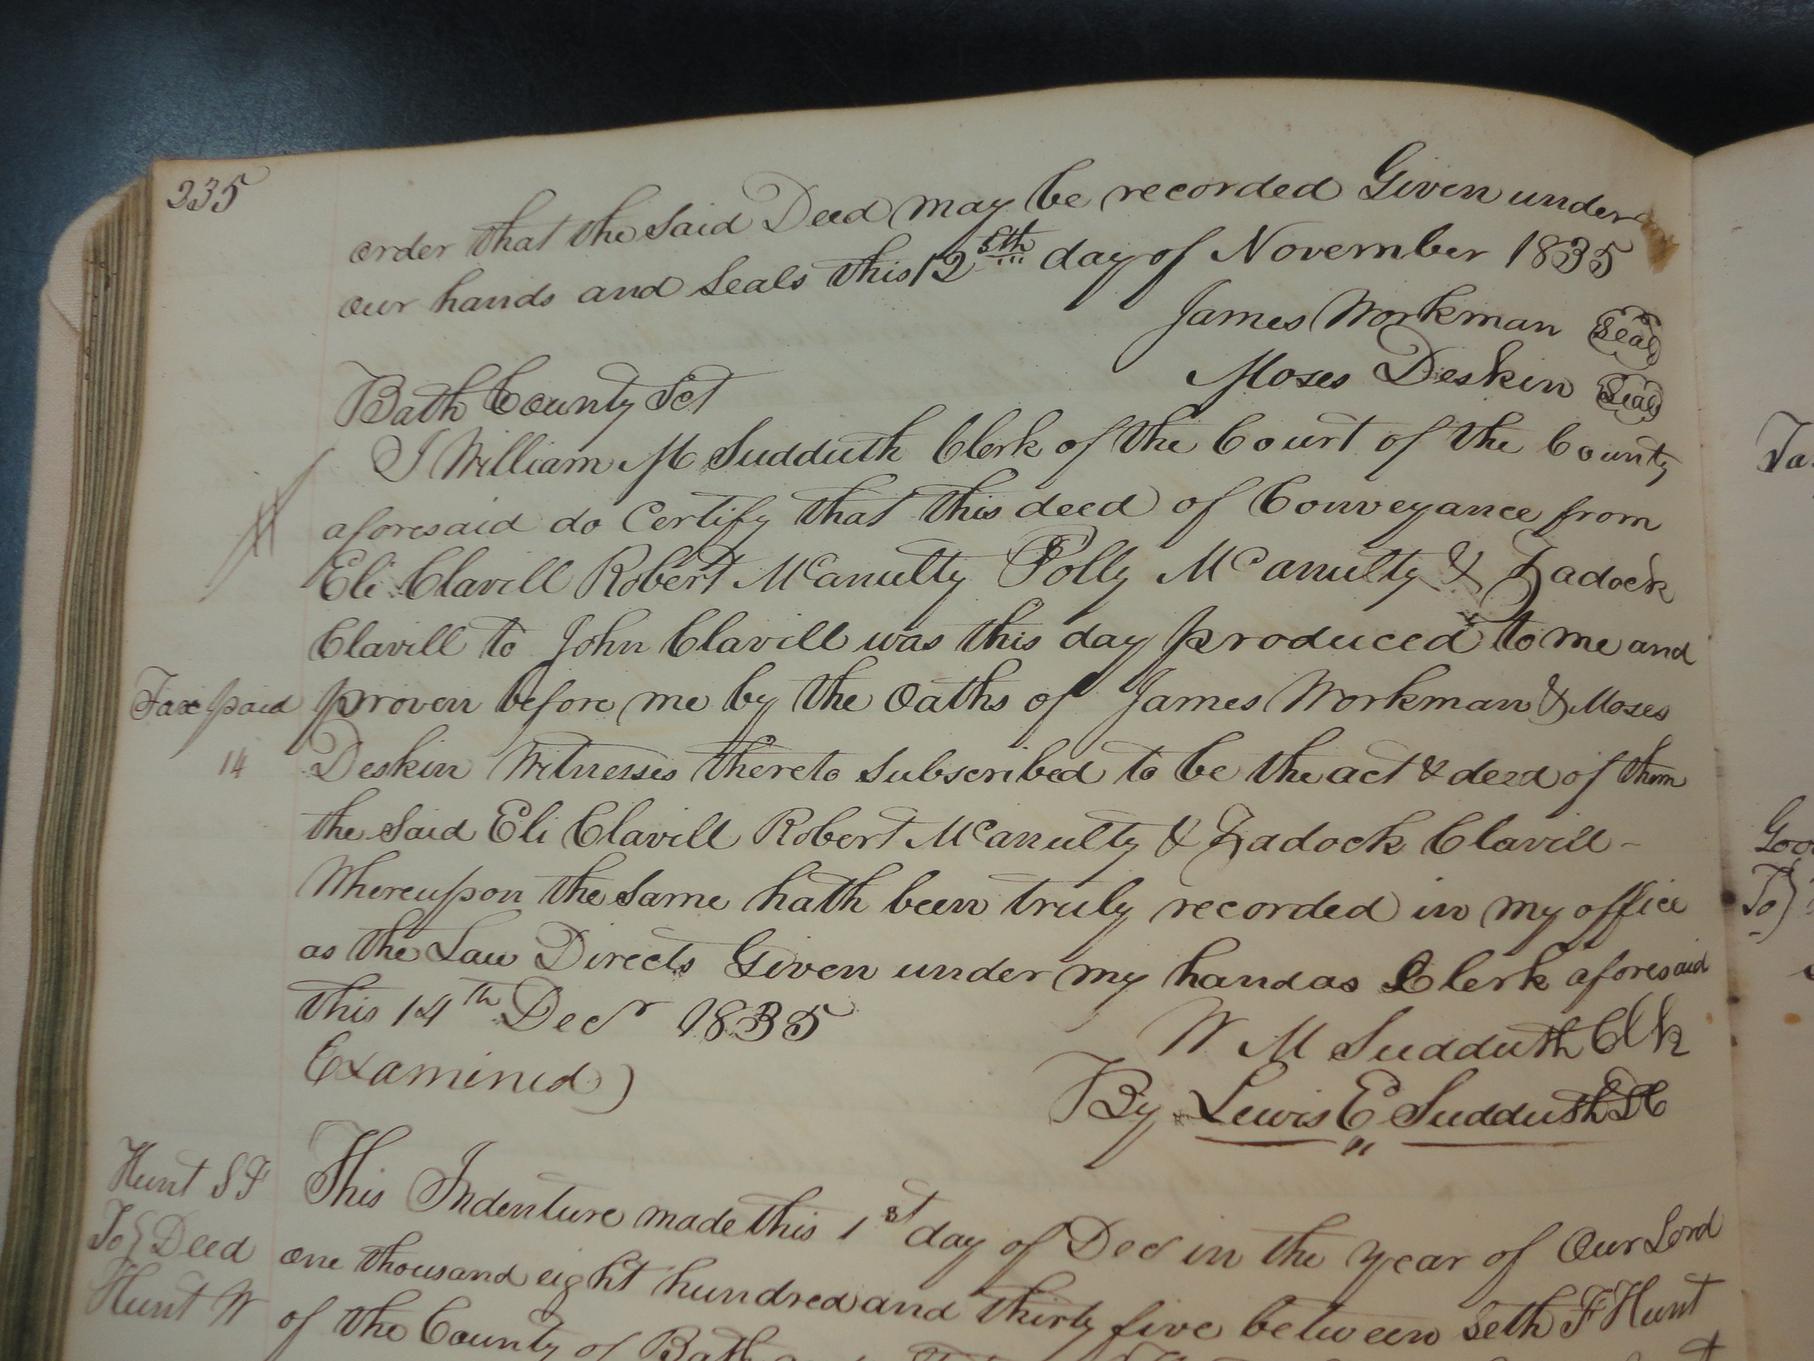 235
order that the said Deed may be recorded Given under
our hands and Seals this 12th day of November 1835
James Workman Seal
Moses Deskin Seal
Bath County Sct
I William M Sudduth Clerk of the Court of the County
aforesaid do Certify that this deed of Conveyance from
Eli Clavill Robert McAnulty Polly McAnulty & Zadock
Clavill to John Clavill was this day produced to me and
Tax paid
14
proven before me by the Oaths of James Workman & Moses
Deskin Witnesses thereto Subscribed to be the act & deed of them
the said Eli Clavill Robert McAnulty & Zadock Clavill -
Whereupon the same hath been truly recorded in my office
as the Law Directs Given under my hand as Clerk aforesaid
this 14th Decr 1835
W. M Sudduth Clk
Examined)
By Lewis E Sudduth DC
Hunt S F
To} Deed
Hunt W
This Indenture made this 1st day of Dec in the year of Our Lord
one thousand eight hundred and thirty five between Seth F Hunt
of the County of Bath